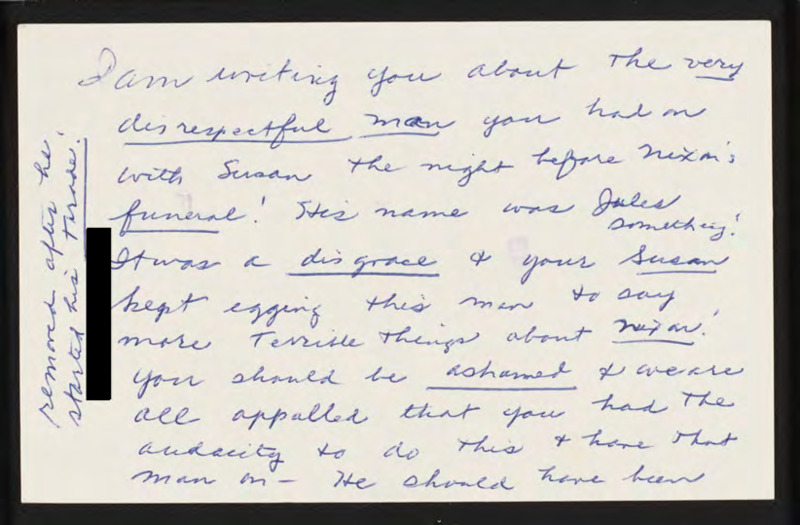 I am writing you about the very
disrespectful man you had on
with Susan the night before Nixon's
funeral! His name was Jules
something!
It was a disgrace & your Susan
kept egging this man to say
more terrible things about Nixon!
You should be ashamed & we are
all appalled that you had the
audacity to do this & have that
man on — He should have been
removed after he
started his tirade!